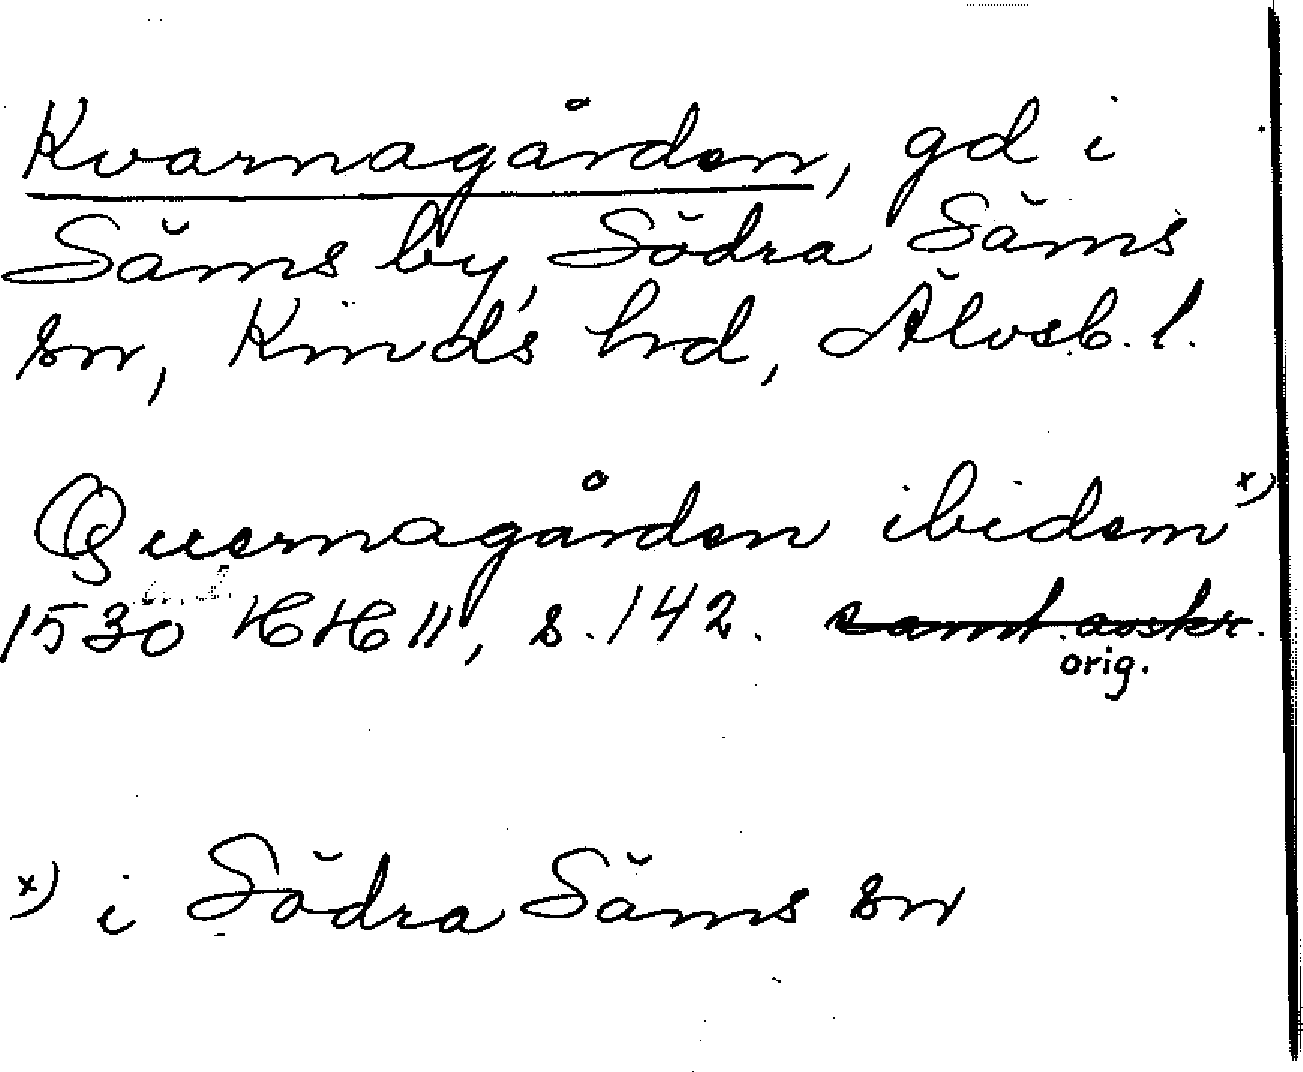 Kvarnagården, gd i
Säms by, Södra Säms
sn, Kinds hd, Älvsb. l.
Quernagården ibidem x)
1530 HH II, s. 142. samt. avskr.
orig.
x) i Södra Säms sn